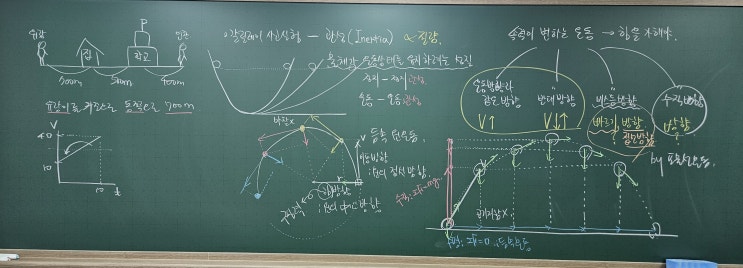 집
P
학교
500m
500m
400m
700m
V
40
10
10
t
갈릴레이 사고실험 – 관성(Inertia) ∝ 질량.
물체가 운동상태를 유지하려는 성질
정지 – 정지관성
운동 – 운동관성
마찰X
등속 원운동.
운동방향
: 원의 접선방향.
힘방향
: 원의 중심방향
구심력
속력이 변하는 운동 → 힘을 가해야.
운동방향과
같은 방향
V↑
반대방향
V↓↑
비스듬방향
빠르기, 방향
?
수직방향
방향
?
by 포물선운동.
수직: 가속 -mg.
공기저항X
수평: =0 등속운동